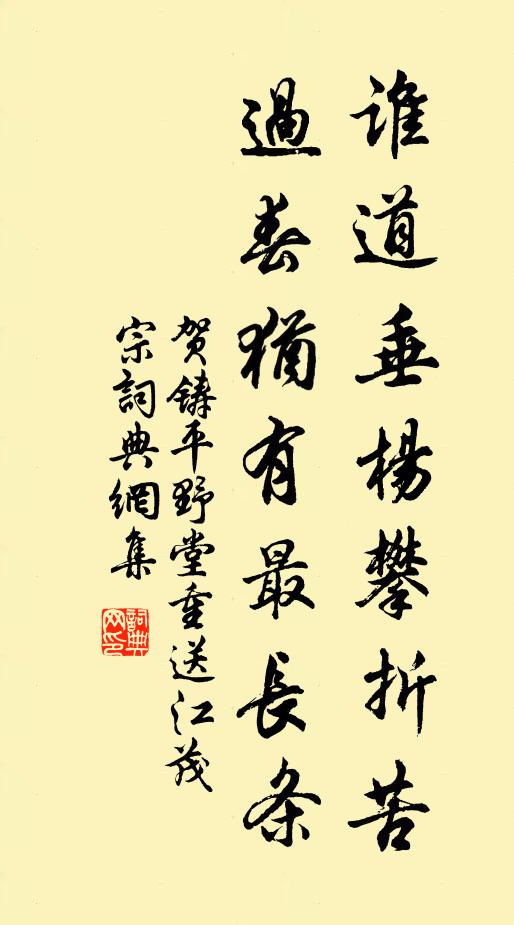 誰道垂楊攀折苦
過春猶有最長条
贺鑄平野堂重送江茂
宗詞典網集
詞典
网印